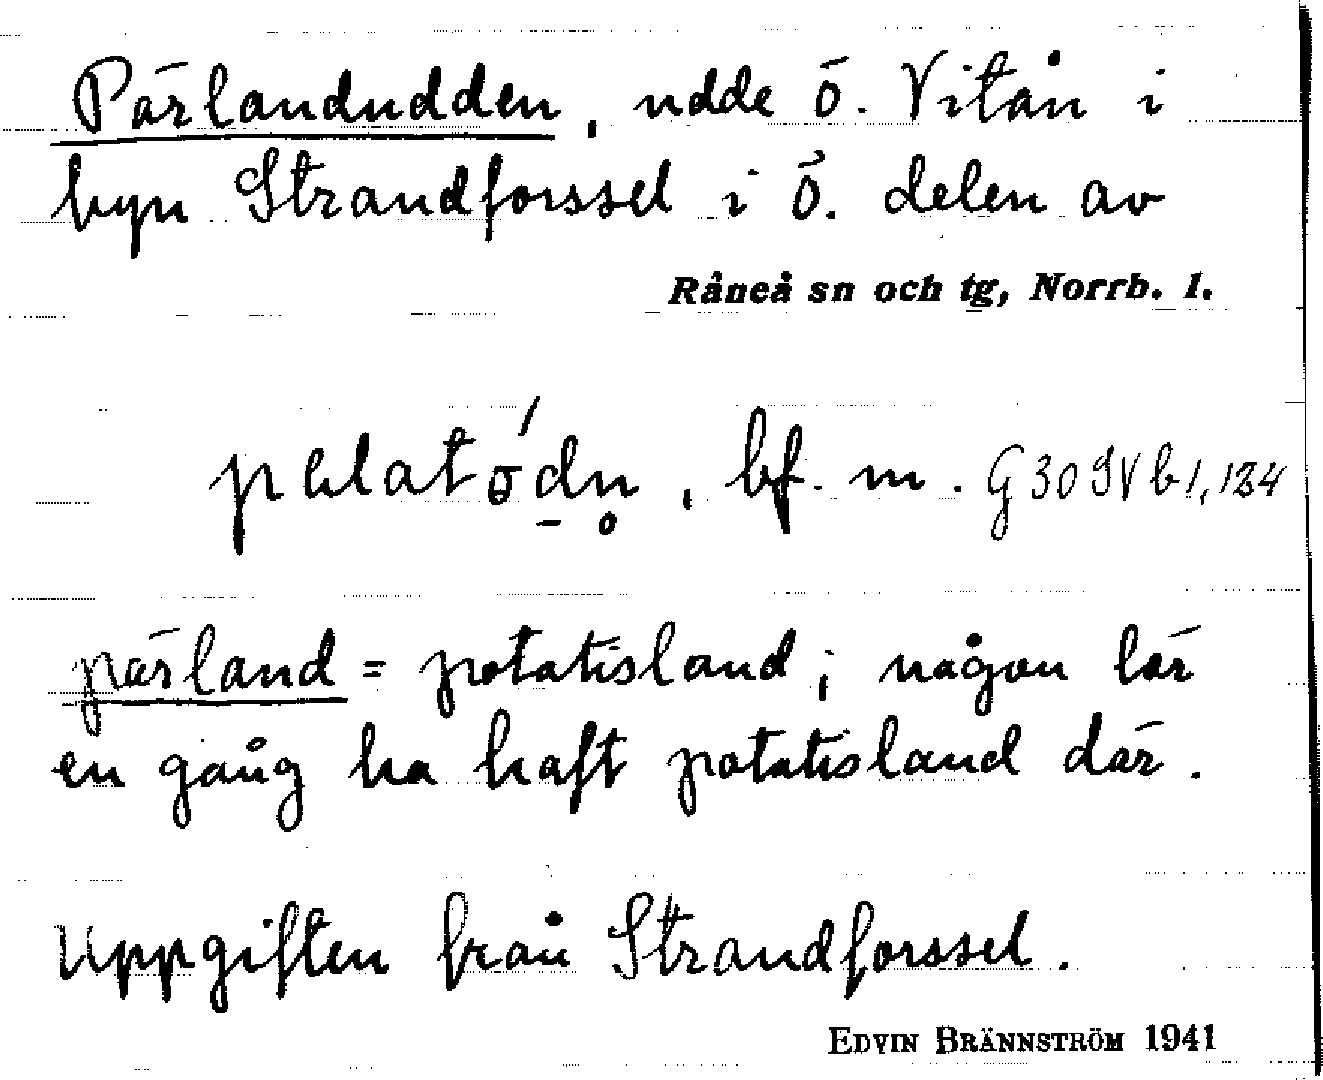 Pärlandudden, udde ö. Vitån i
byn Strandforssel i ö. delen av
Råneå sn och tg, Norrb. l.
bf. m. G 30 IV b 1, 134
pärland = potatisland; någon lär
en gång ha haft potatisland där.
Uppgiften från Strandforssel.
EDVIN BRÄNNSTRÖM 1941